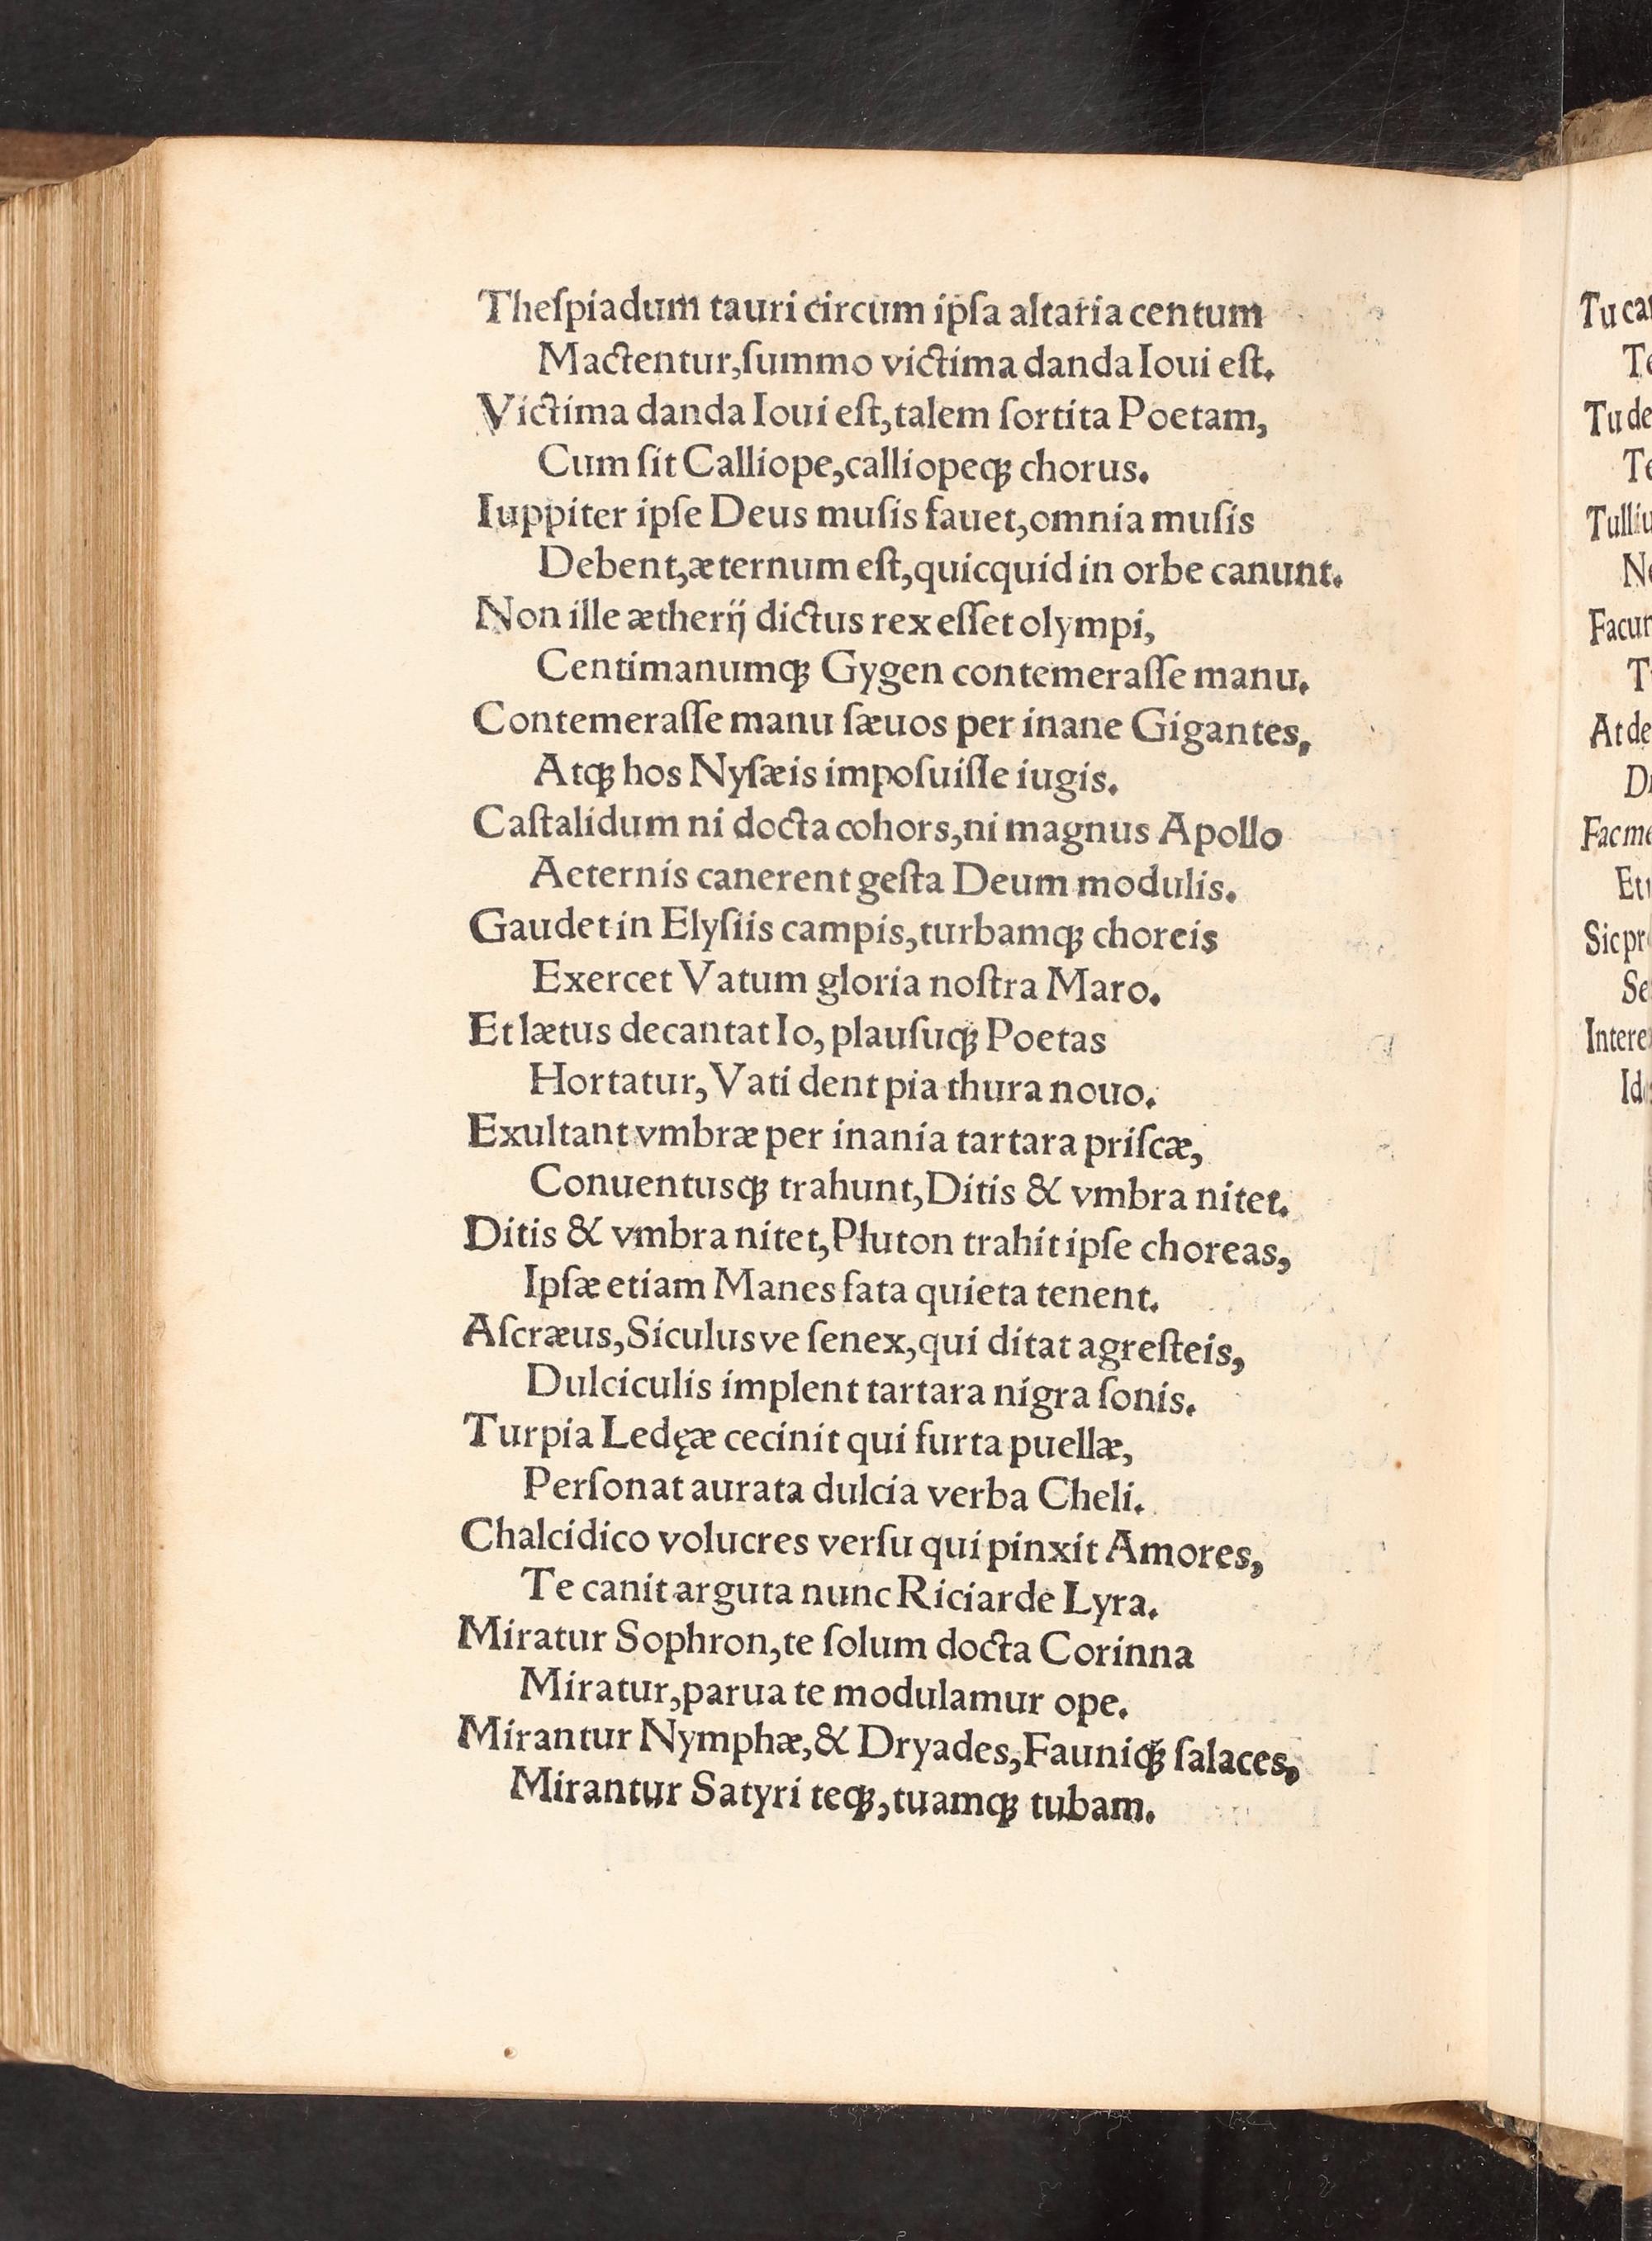 Theſpiadum tauri circum ipſa altaria centum
Mactentur,ſummo victima danda Ioui eſt.
Victima danda Ioui eſt,talem ſortita Poetam,
Cum ſit Calliope,calliopeqꝫ chorus.
Iuppiter ipſe Deus muſis fauet,omnia muſis
Debent,æternum eſt,quicquid in orbe canunt.
Non ille ætherij dictus rex eſſet olympi,
Centimanumqꝫ Gygen contemeraſſe manu.
Contemeraſſe manu ſæuos per inane Gigantes,
Atqꝫ hos Nyſæis impoſuiſſe iugis.
Caſtalidum ni docta cohors,ni magnus Apollo
Aeternis canerent geſta Deum modulis.
Gaudet in Elyſiis campis,turbamqꝫ choreis
Exercet Vatum gloria noſtra Maro.
Et lætus decantat Io, plauſuqꝫ Poetas
Hortatur,Vati dent pia thura nouo.
Exultant vmbræ per inania tartara priſcæ,
Conuentusqꝫ trahunt,Ditis & vmbra nitet.
Ditis & vmbra nitet,Pluton trahit ipſe choreas,
Ipſæ etiam Manes fata quieta tenent.
Aſcræus,Siculusve ſenex,qui ditat agreſteis,
Dulciculis implent tartara nigra ſonis.
Turpia Ledęæ cecinit qui furta puellæ,
Perſonat aurata dulcia verba Cheli.
Chalcidico volucres verſu qui pinxit Amores,
Te canit arguta nunc Riciarde Lyra.
Miratur Sophron,te ſolum docta Corinna
Miratur,parua te modulamur ope.
Mirantur Nymphæ,& Dryades,Fauniqꝫ ſalaces,
Mirantur Satyri teqꝫ,tuamqꝫ tubam.
Tu
Tu de
Tulliu
Facun
At de
Fac me
Sic pr
Intere